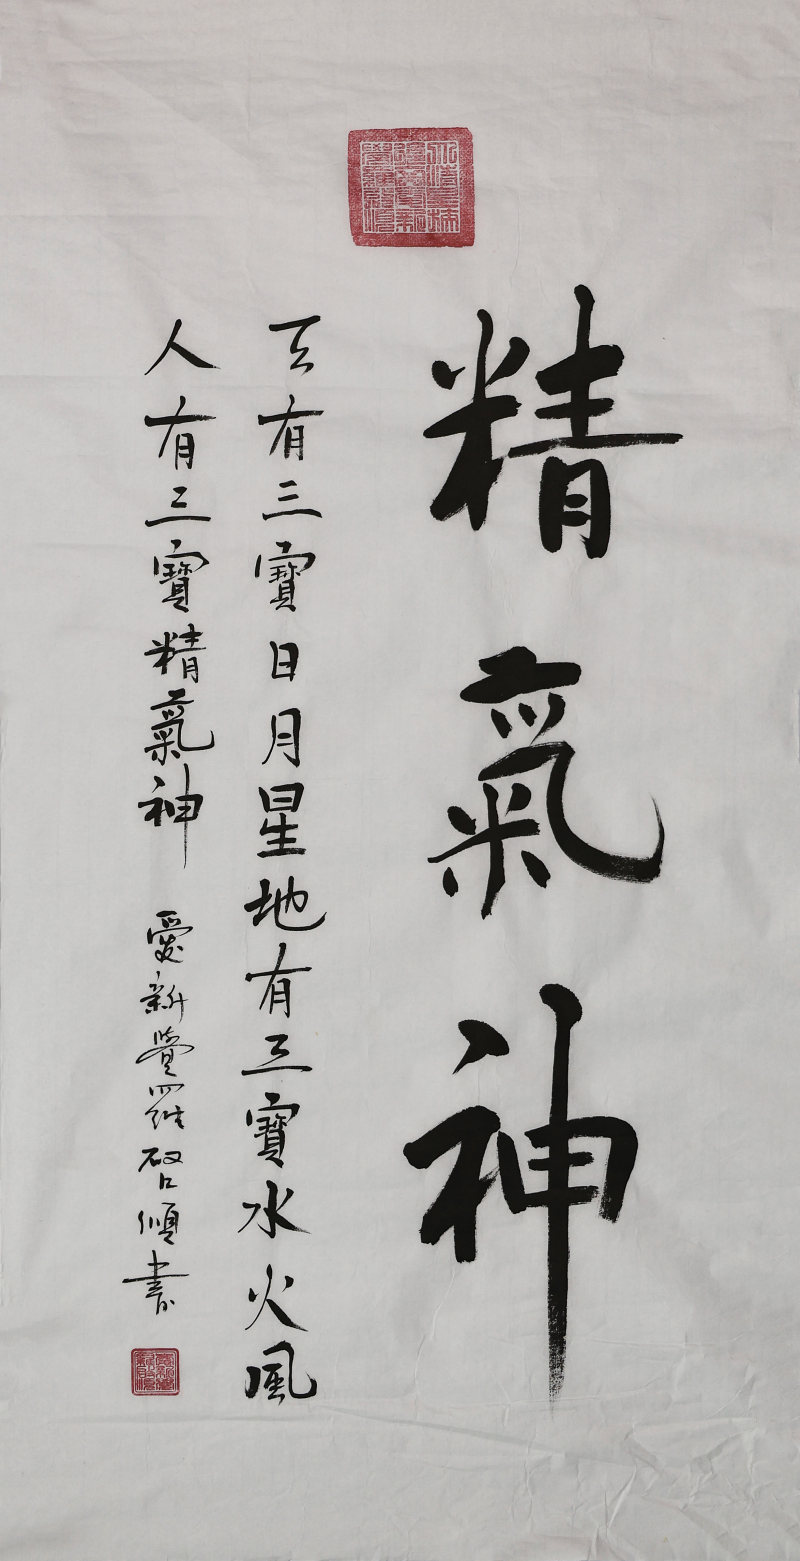 精氣神
天有三寶日月星地有三寶水火風
人有三寶精氣神 愛新覺羅啓傾書